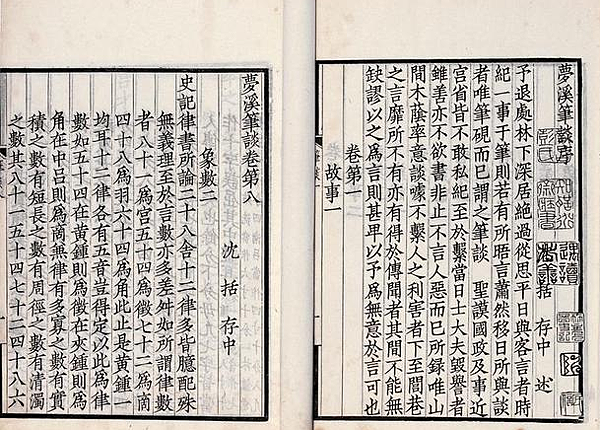 夢溪筆談序
括 存中 述
予退處林下深居絕過從思平日與客言者時
紀一事于筆則若有所晤言蕭然移日所與談
者唯筆硯而已謂之筆談 聖謨國政及事近
宮省皆不敢私紀至於繫當日士大夫毀譽者
雖善亦不欲書非止不言人惡而已所錄唯山
間木蔭率意談噱不繫人之利害者下至閭巷
之言靡所不有亦有得於傳聞者其間不能無
缺謬以之為言則甚卑以予為無意於言可也
卷第一
故事一
夢溪筆談卷第八
沈 括 存中
象數二
史記律書所論二十八舍十二律多皆臆配殊
無義理至於言數亦多差舛如所謂律數
者八十一為宮五十四為徵七十二為商
四十八為羽六十四為角此止是黃鍾一
均耳十二律各有五音豈得定以此為律
數如五十四在黃鍾則為徵在夾鍾則為
角在中呂則為商兼律有多寡之數有實
積之數有短長之數有周徑之數有清濁
之數其八十一五十四七十二四十八六